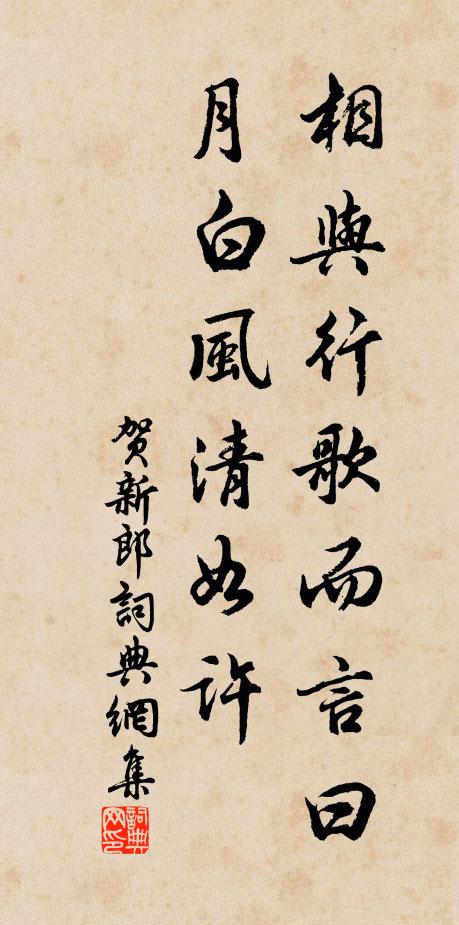 相與行歌而言曰
月白風清如許
贺新郎詞典網集
詞典网印